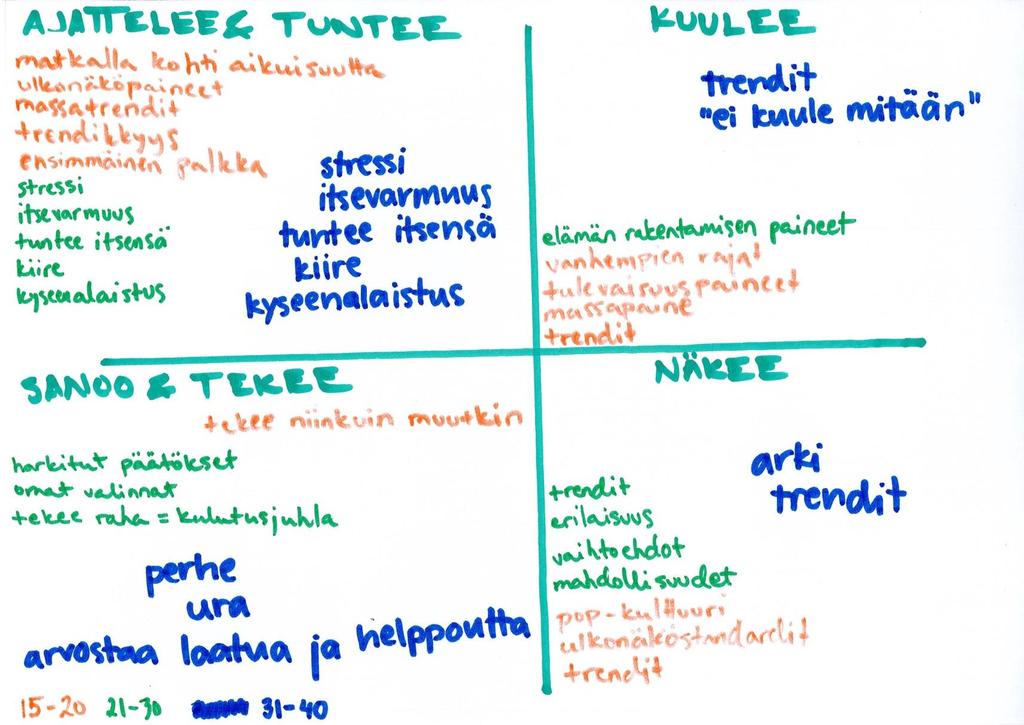 AJATTELEE & TUNTEE
matkalla kohti aikuisuutta
ulkonäköpaineet
massatrendit
trendikkyys
ensimmäinen palkka
stressi
itsevarmuus
tuntee itsensä
kiire
kyseenalaistus
stressi
itsevarmuus
tuntee itsensä
kiire
kyseenalaistus
KUULEE
trendit
"ei kuule mitään"
elämän rakentamisen paineet
vanhempien rajat
tulevaisuuspaineet
massapaine
trendit
SANOO & TEKEE
tekee niinkuin muutkin
harkitut päätökset
omat valinnat
tekee raha = kulutusjuhla
perhe
ura
arvostaa laatua ja helppoutta
15-20 21-30 31-40
NÄKEE
arki
trendit
trendit
erilaisuus
vaihtoehdot
mahdollisuudet
pop-kulttuuri
ulkonäköstandardit
trendit